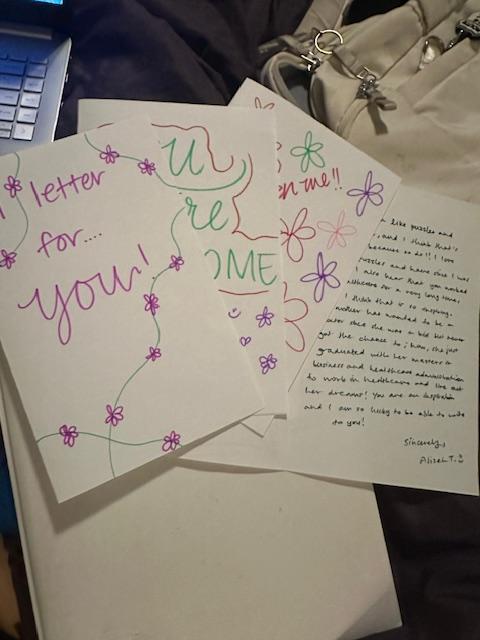 letter
for...
you!
u
re
OME
en me!!
like puzzles and
, and I think that's
because so do I! I love
puzzles and have since I was
I also hear that you worked
healthcare for a very long time,
I think that is so inspiring.
mother has wanted to be a
since she was a kid but never
got the chance to; now, she just
graduated with her masters in
business and healthcare administration
to work in healthcare and live out
her dreams! You are an inspiration
and I am so lucky to be able to write
to you!
Sincerely,
Alizeh T.